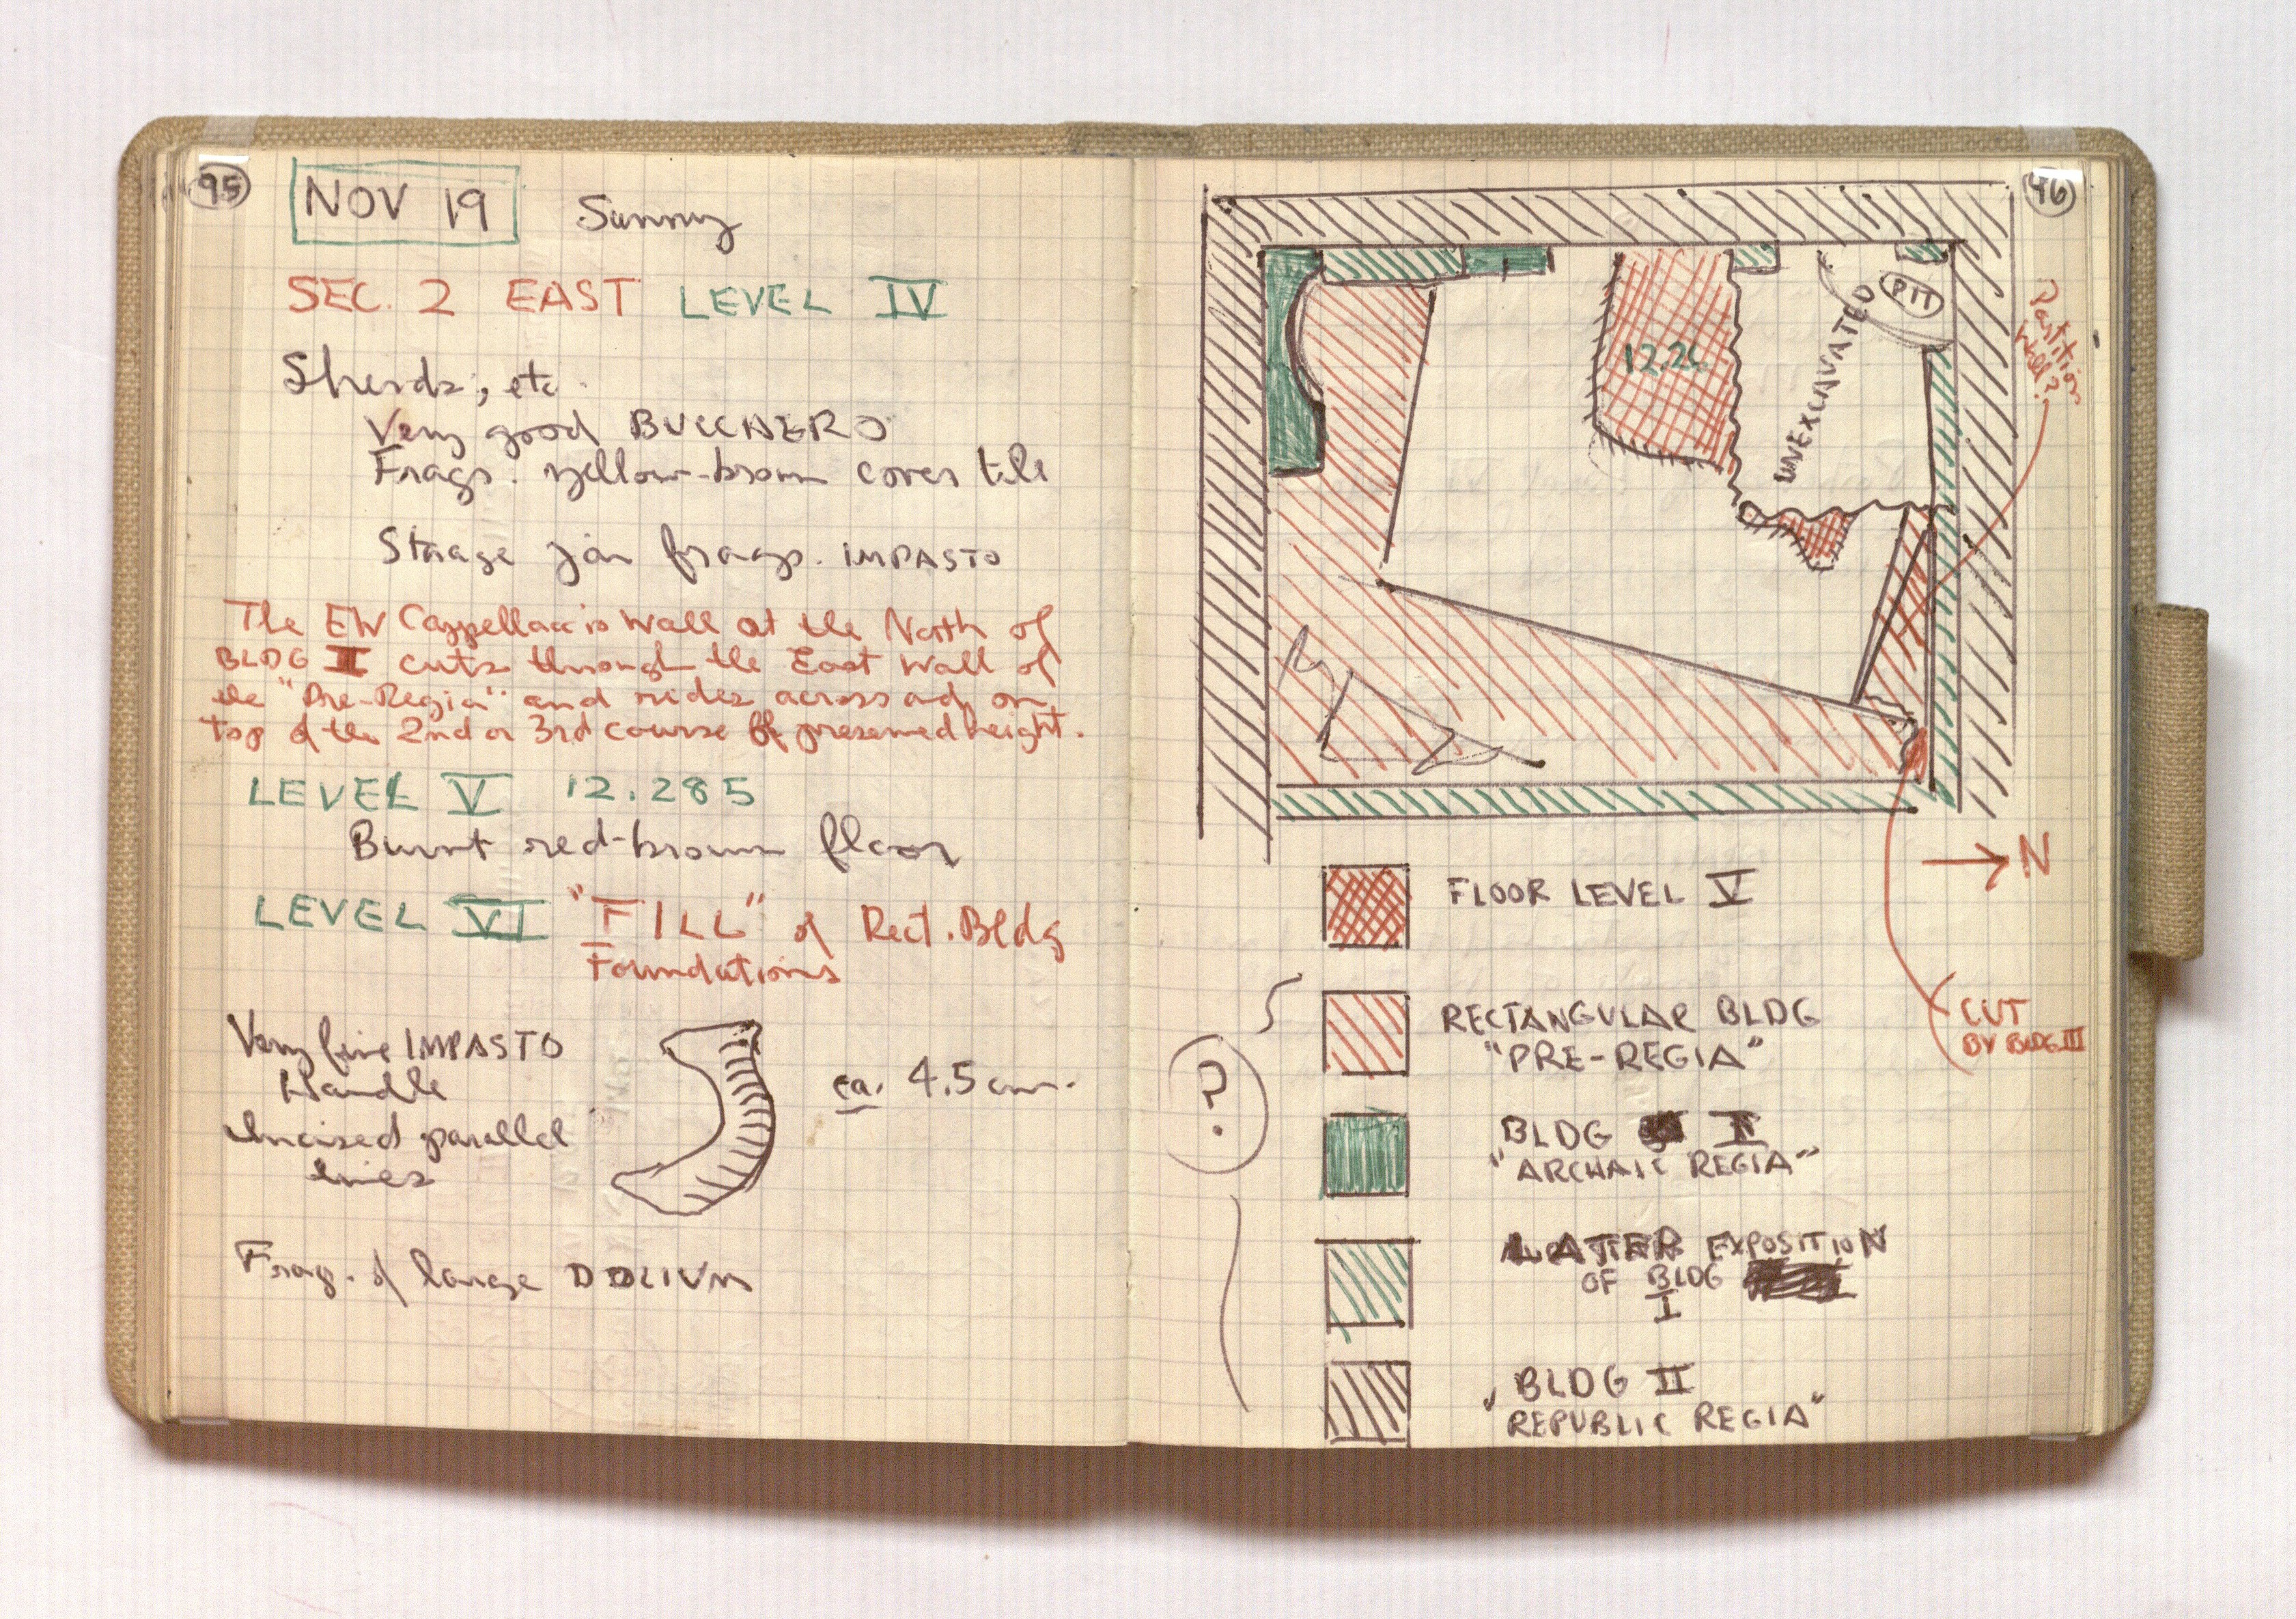 95
NOV 19 Sunny
SEC. 2 EAST LEVEL IV
Sherds, etc.
Very good BUCCHERO
Frags. yellow-brown cover tile
Storage jar frags. IMPASTO
The EW Cappellaccio Wall at the North of
BLDG II cuts through the East Wall of
the "Pre-Regia" and rides across on
top of the 2nd or 3rd course of preserved height.
LEVEL V 12.285
Burnt red-brown floor
LEVEL VI "FILL" of Rect. Bldg
Foundations
Very fine IMPASTO
Handle
Incised parallel
lines
ca. 4.5 cm.
Frag. of large DOLIUM
46
PIT
UNEXCAVATED
Partition
Wall?
N
FLOOR LEVEL V
RECTANGULAR BLDG
"PRE-REGIA"
CUT
BY BLDG III
?
BLDG I
"ARCHAIC REGIA"
LATER EXPOSITION
OF BLDG
I
BLDG II
"REPUBLIC REGIA"